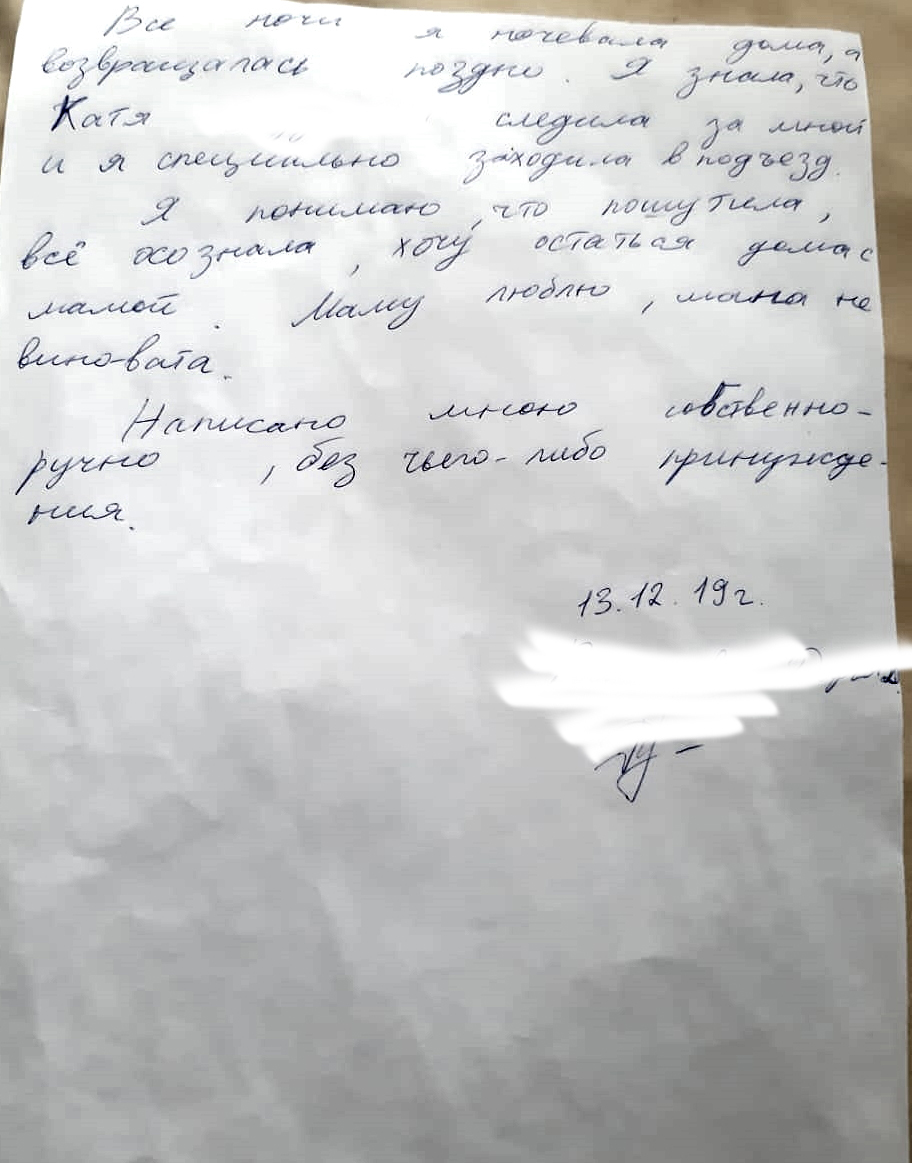 Все ночи я ночевала дома, а
возвращалась поздно. Я знала, что
Катя следила за мной
и я специально заходила в подъезд.
Я понимаю, что пошутила,
всё осознала, хочу остаться дома с
мамой. Маму люблю, мама не
виновата.
Написано мною собственно-
ручно, без чьего-либо принужде-
ния.
13.12.19г.